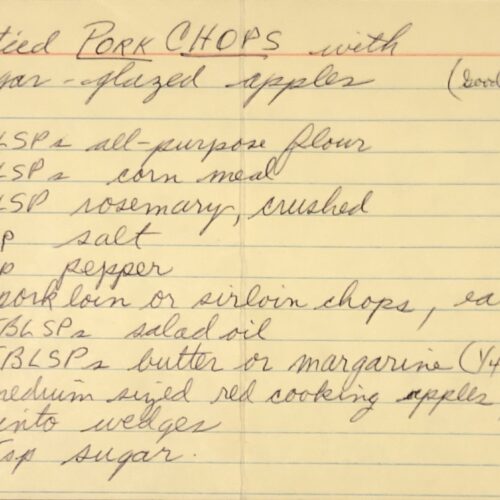 tied PORK CHOPS with
gar-glazed apples (Good
LSPs all-purpose flour
LSPs corn meal
LSP rosemary, crushed
P salt
p pepper
pork loin or sirloin chops, ea
TBLSPs salad oil
TBLSPs butter or margarine (1/4
medium sized red cooking apples
into wedges
Tsp sugar.